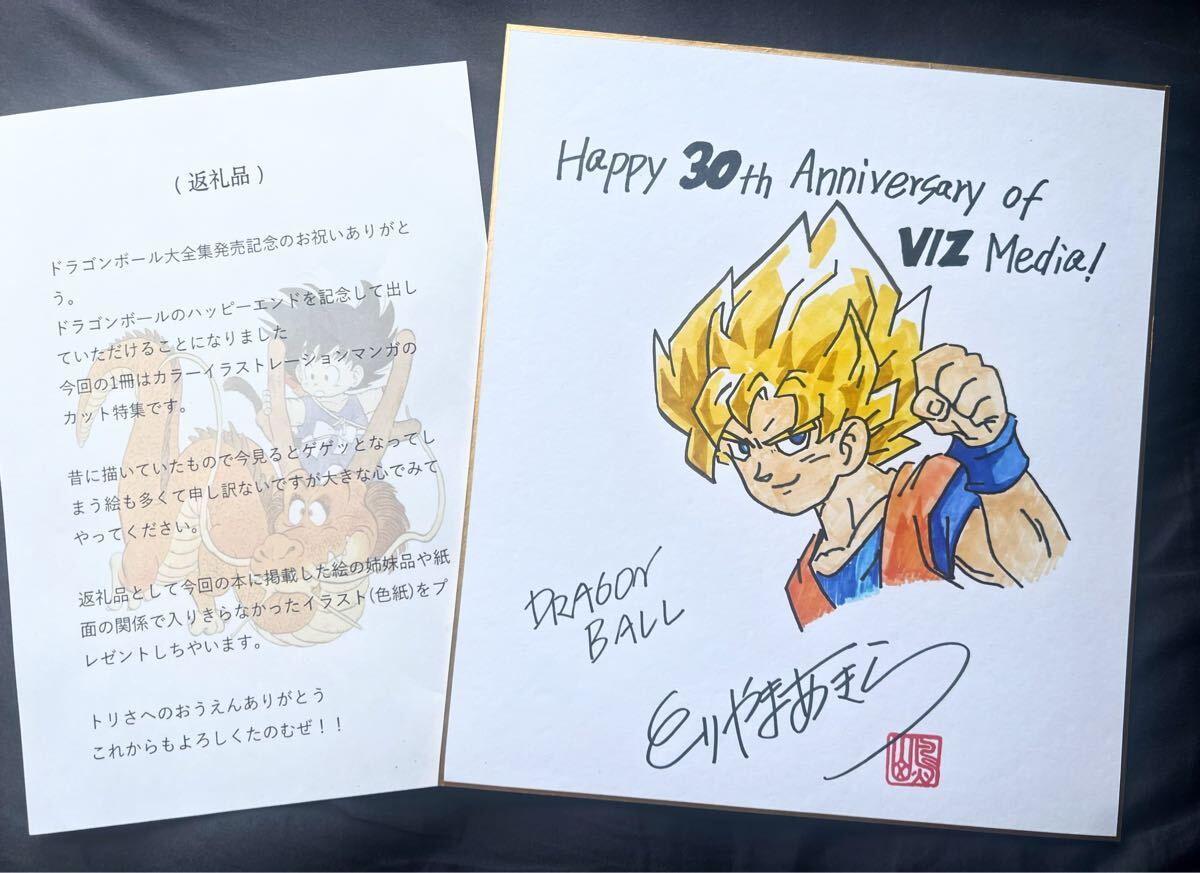 (返礼品)
ドラゴンボール大全集発売記念のお祝いありがと
う。
ドラゴンボールのハッピーエンドを記念して出し
ていただけることになりました
今回の1冊はカラーイラストレーションマンガの
カット特集です。
昔に描いていたもので今見るとゲゲッとなってし
まう絵も多くて申し訳ないですが大きな心でみて
やってください。
返礼品として今回の本に掲載した絵の姉妹品や紙
面の関係で入りきらなかったイラスト(色紙)をプ
レゼントしちやいます。
トリさへのおうえんありがとう
これからもよろしくたのむぜ！！
Happy 30th Anniversary of
VIZ Media!
DRAGON
BALL
とりやまあきら